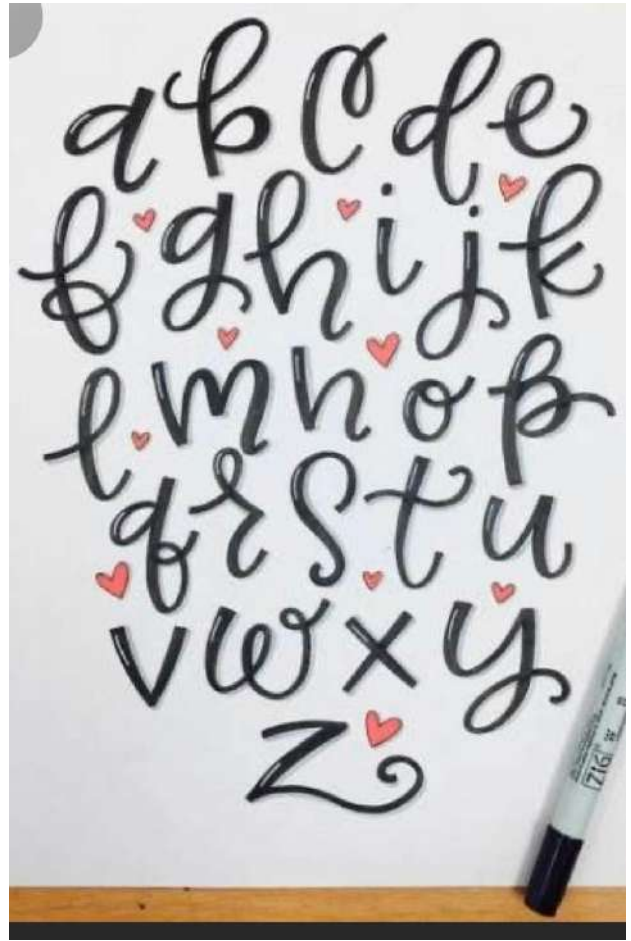 a b c d e
f g h i j k
l m n o p
q r s t u
v w x y
z
ZIG